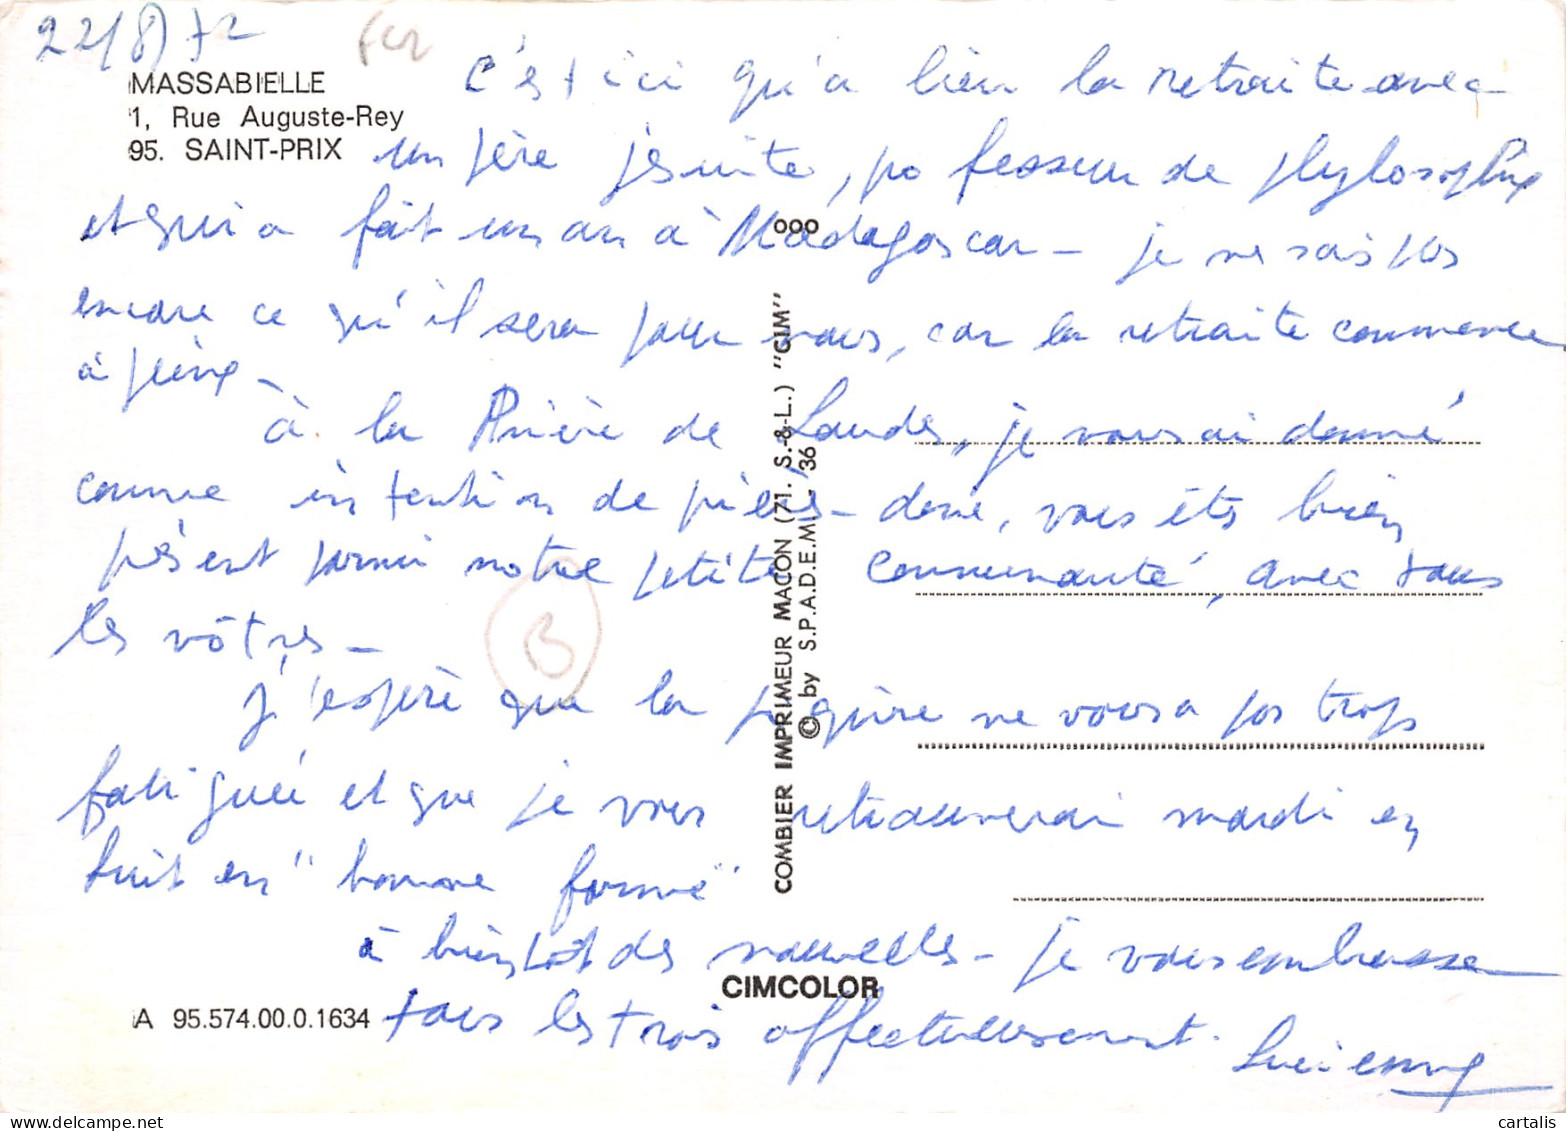 22/8/72
MASSABIELLE
1, Rue Auguste-Rey
95. SAINT-PRIX
C'est ici qu'a lieu la retraite avec
un père jésuite, pofesseur de phylosophie
et qui a fait un an à Madagascar - je ne sais pas
encore ce qu'il sera pour nous, car la retraite commence
à peine -
à la Prière de Laudes, je vous ai donné
comme intention de prières - donc, vous êtes bien
présent parmi notre petite communauté, avec tous
les vôtres -
J'espère que la piqûre ne vous a pas trop
fatiguée et que je vous retrouverai mardi en
huit en "bonne forme"
à bientôt des nouvelles - je vous embrasse
tous les trois affectueusement.
Lucienne
B
ooo
COMBIER IMPRIMEUR MACON (71. S.-&-L.) "CIM"
© by S.P.A.D.E.M. 36
CIMCOLOR
A 95.574.00.0.1634
cartalis